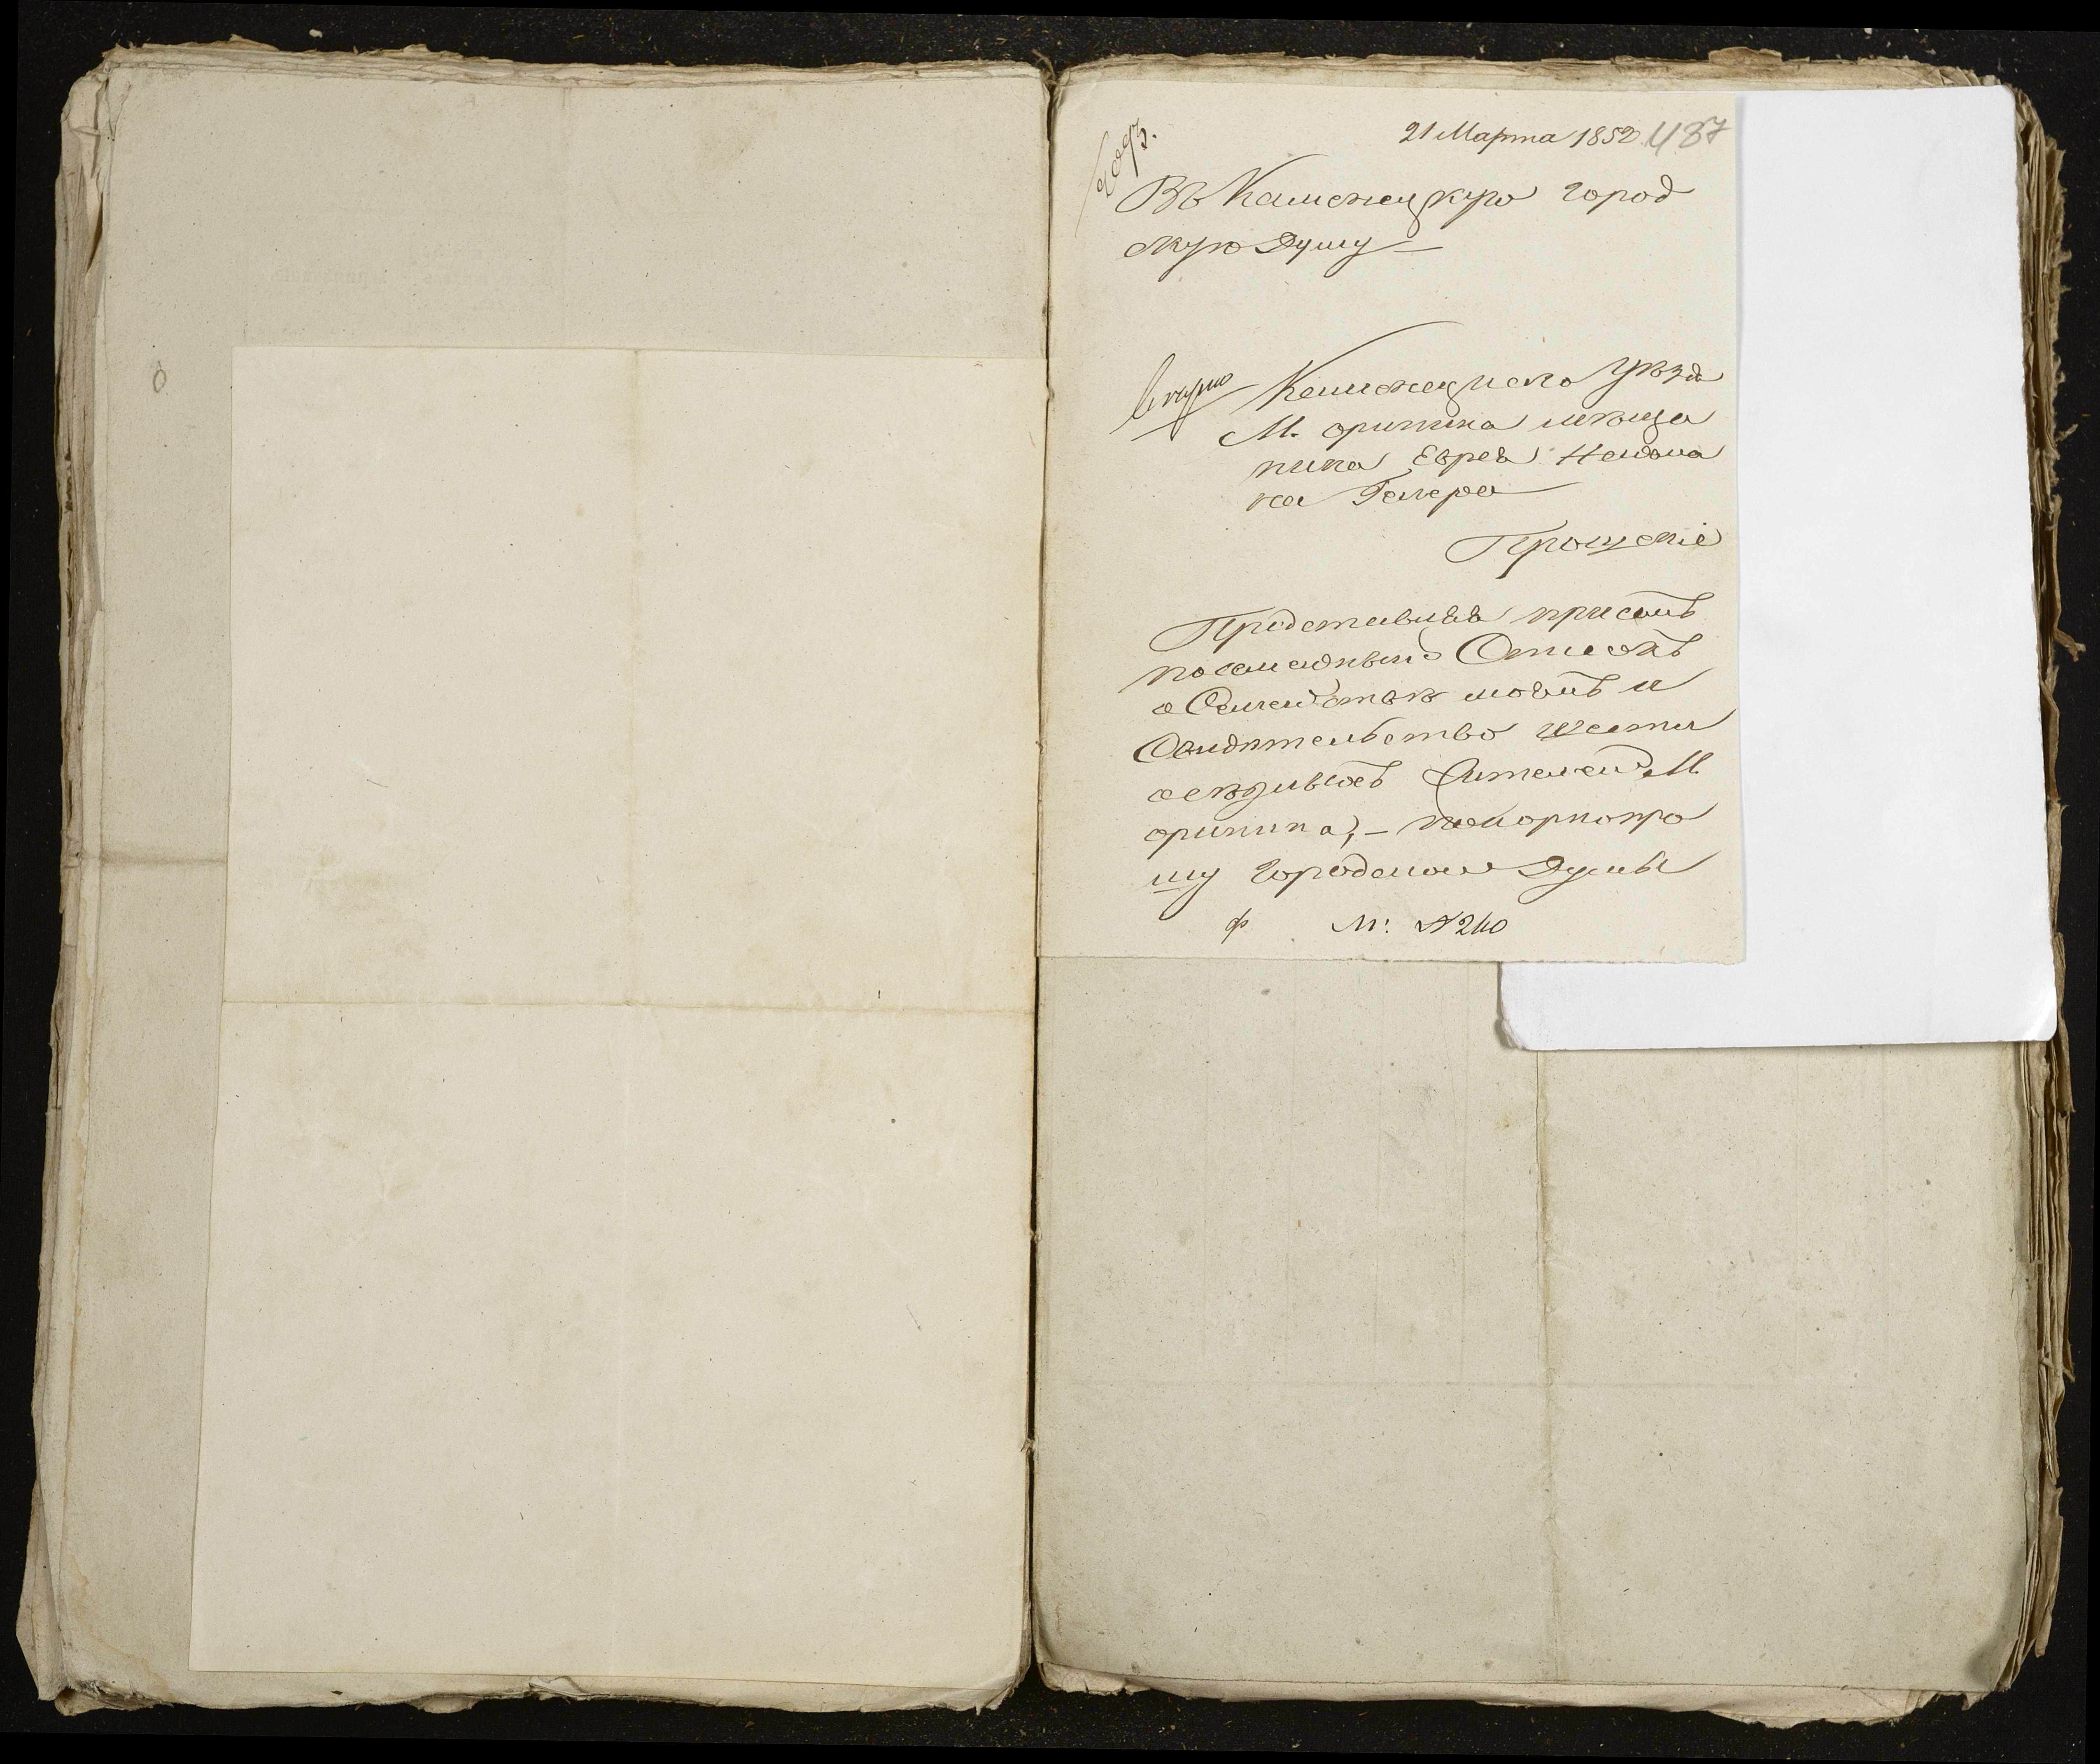 21 Марта 1852 487
Въ Каменецкую город
скую Думу
Каменецкаго Уѣзда
М. оринина мѣща
нина Еврея
на Гелера
Прошеніе
Представляя при семъ
посемейный Списокъ
о Семействѣ моемъ и
Свидѣтельство шести
осѣдлыхъ Жителей М.
оринина, – покорно про
шу Городской Думы
М: № 240